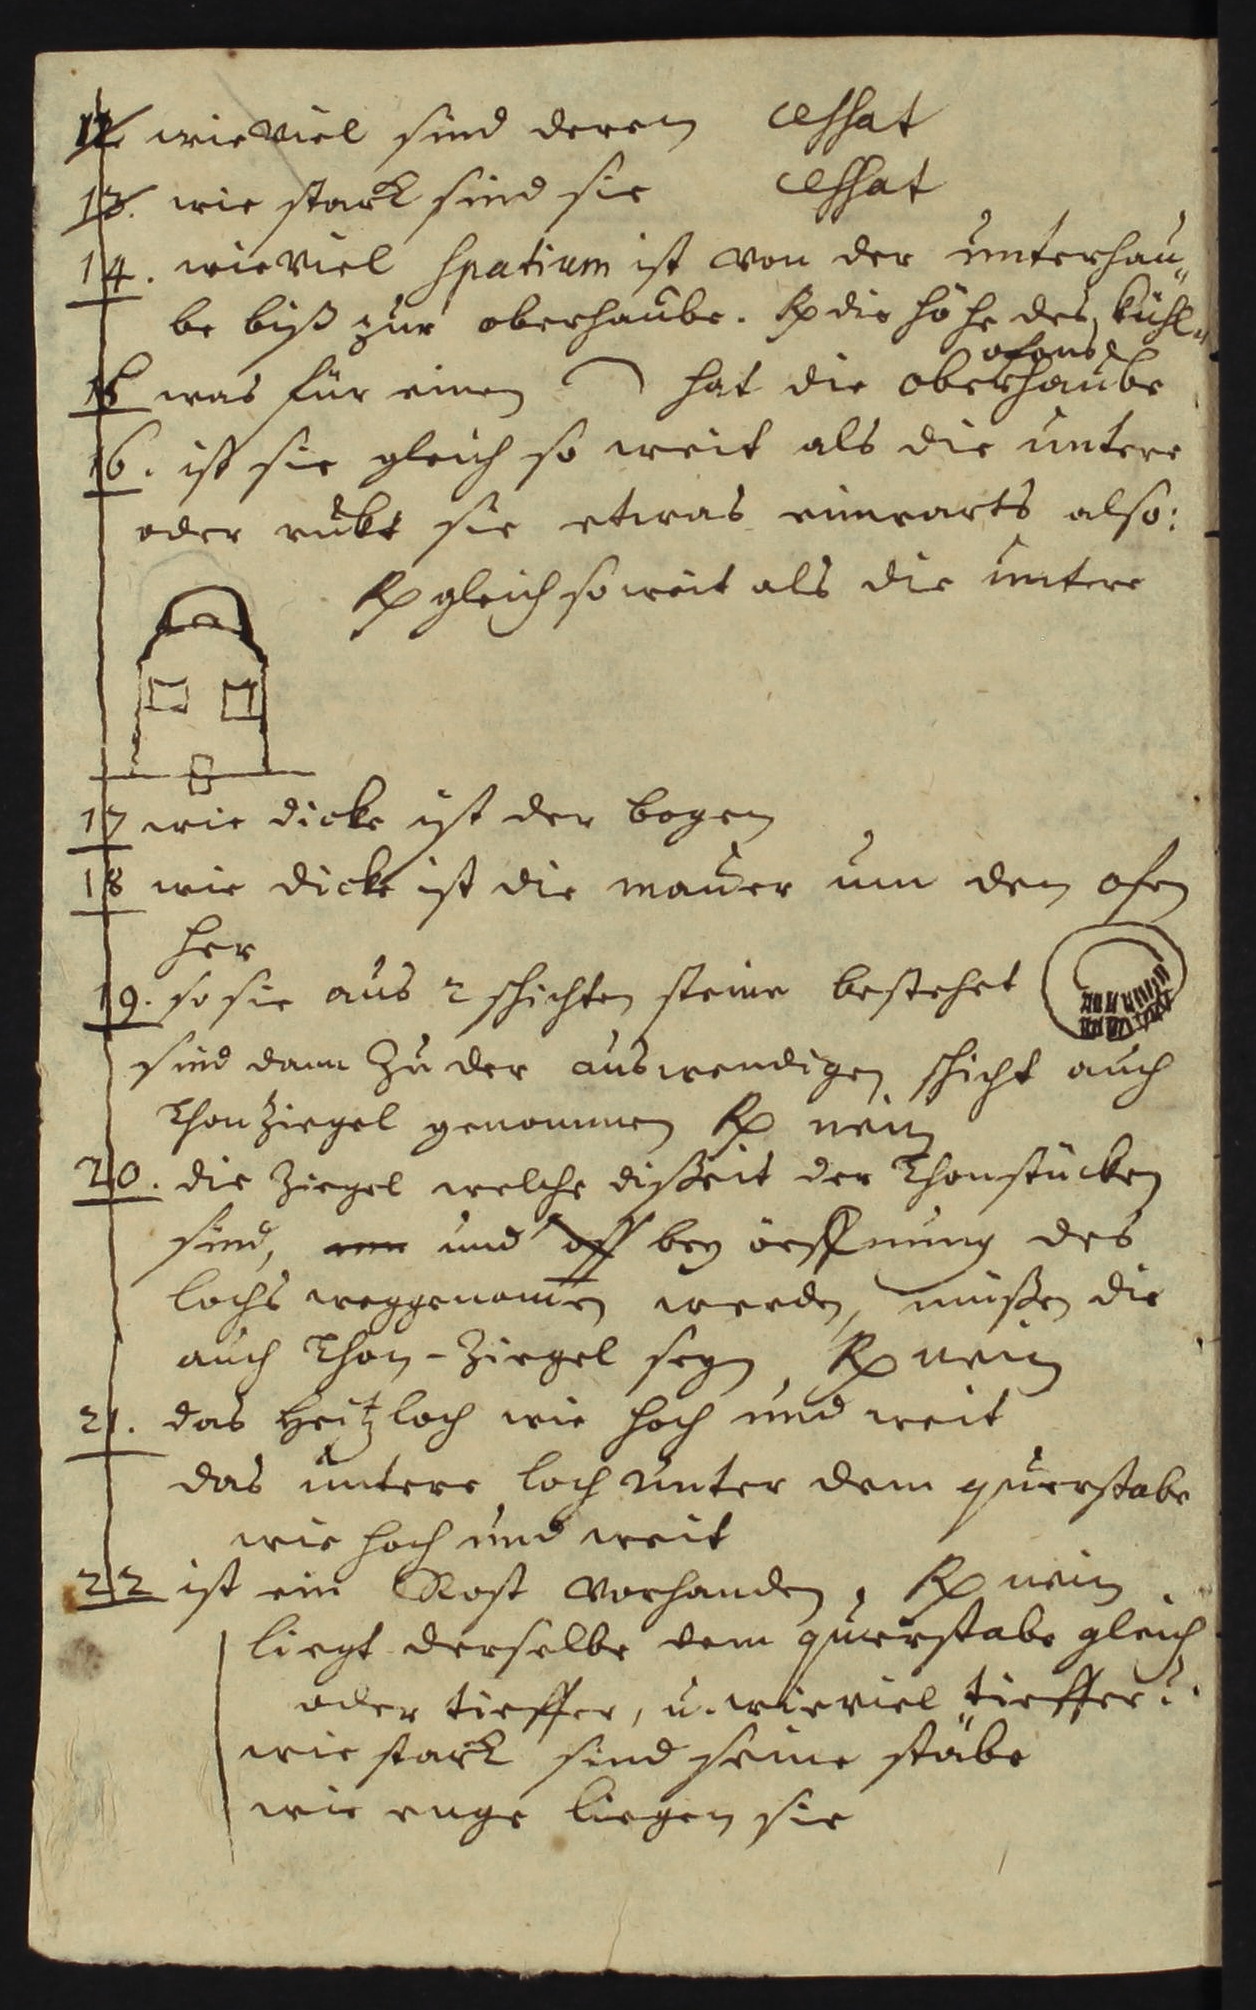 12. wieviel sind deren cessat
13. wie starck sind sie cessat
14. wieviel spatium ist von der unterhau„
be biß zur oberhaube. Rx die höhe des kühl„
ofens
15 was für einen ⌒ hat die oberhaube
16. ist sie gleich so weit als die untere
oder rukt sie etwas einwarts also:
Rx gleich so weit als die untere
17 wie dicke ist der bogen
18 wie dicke ist die mauer um den ofen
her
19. so sie aus 2 schichten steine bestehet
sind dann zu der auswendigen schicht auch
Thonziegel genommen Rx nein
20. die Ziegel welche dißeit der Thonstücken
sind, und bey öeffnung des
lochs weggenomen werden, müßen die
auch Thon-Ziegel seyn, Rx nein
21. das Heitzloch wie hoch und weit
das untere loch unter dem querstabe
wie hoch und weit
22 ist ein Rost vorhanden, Rx nein.
liegt derselbe dem querstabe gleich
oder tieffer, u. wieviel tieffer?
wie starck sind seine stäbe
wie enge liegen sie